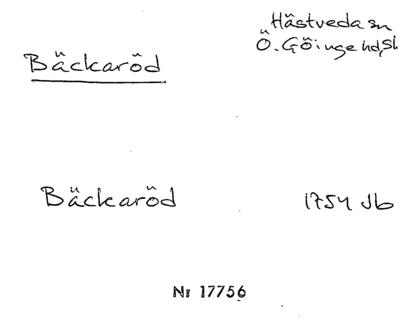 Hästveda sn
Ö. Göinge hd, Sk
Bäckaröd
Bäckaröd 1754 Jb
Nr 17756